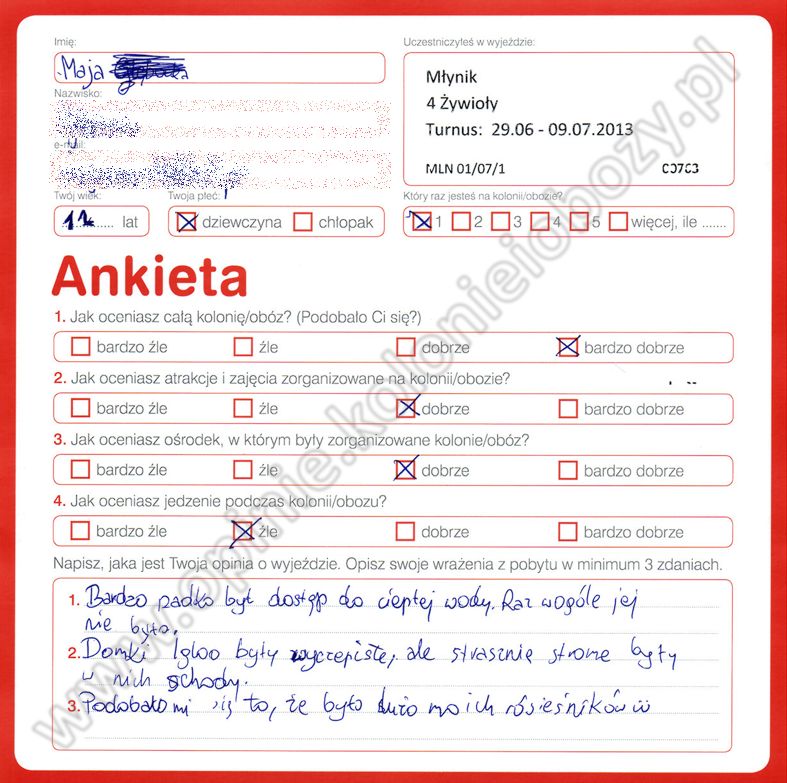 Imię:
Maja
Uczestniczyłeś w wyjeździe:
Młynik
4 Żywioły
Turnus: 29.06 - 09.07.2013
MLN 01/07/1
Nazwisko:
e-mail:
Twój wiek:
lat
Twoja płeć:
dziewczyna
chłopak
Który raz jesteś na kolonii/obozie?
1 2 3 4 5 więcej, ile .......
Ankieta
1. Jak oceniasz całą kolonię/obóz? (Podobało Ci się?)
bardzo źle źle dobrze bardzo dobrze
2. Jak oceniasz atrakcje i zajęcia zorganizowane na kolonii/obozie?
bardzo źle źle dobrze bardzo dobrze
3. Jak oceniasz ośrodek, w którym były zorganizowane kolonie/obóz?
bardzo źle źle dobrze bardzo dobrze
4. Jak oceniasz jedzenie podczas kolonii/obozu?
bardzo źle źle dobrze bardzo dobrze
Napisz, jaka jest Twoja opinia o wyjeździe. Opisz swoje wrażenia z pobytu w minimum 3 zdaniach.
1. Bardzo żadko był dostęp do ciepłej wody. Raz wogóle jej
nie było.
2. Domki Igloo były ale strasznie strome były
w nich schody.
3. Podobało mi się to, że było dużo moich
www.opinie.kolonieiobozy.pl